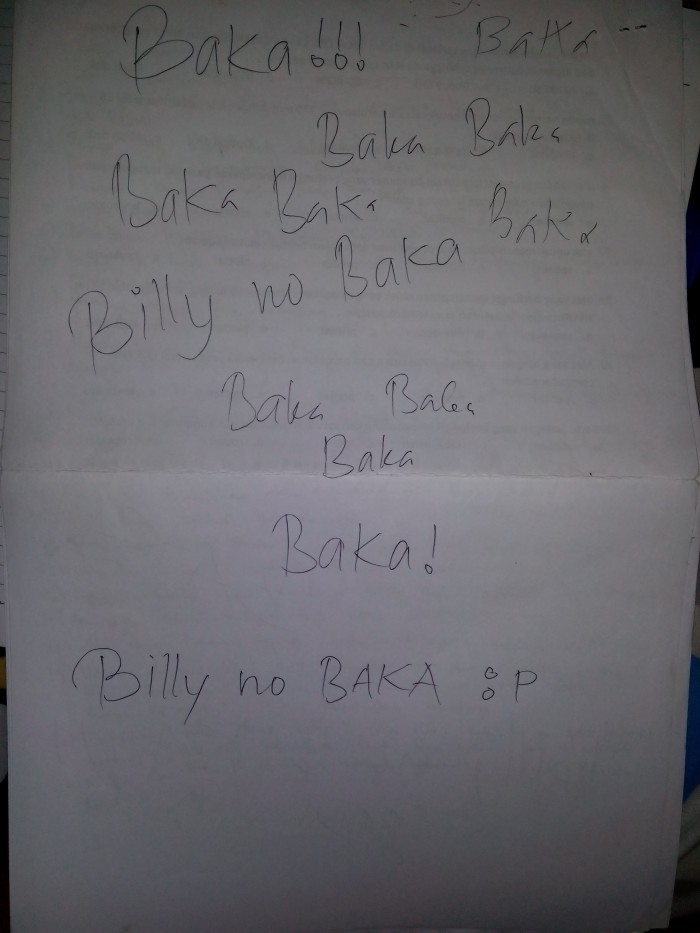 Baka!!! Baka --
Baka Baka
Baka Baka Baka
Billy no Baka
Baka Baka
Baka
Baka!
Billy no BAKA :P